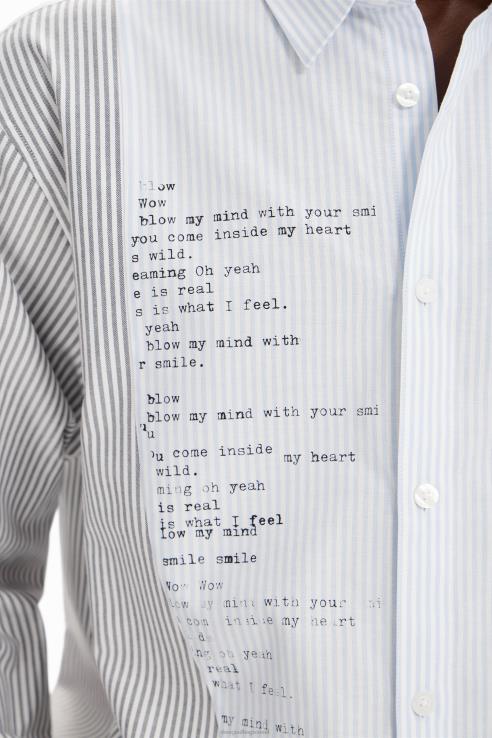 blow
Wow
blow my mind with your smi
you come inside my heart
s wild.
eaming Oh yeah
e is real
s is what I feel.
yeah
blow my mind with
r smile.
blow
blow my mind with your smi
u
u come inside my heart
wild.
ming oh yeah
is real
is what I feel
low my mind
smile smile
Wow Wow
low my mind with your
com inside my he rt
d
ng oh yeah
real
what I feel.
my mind with